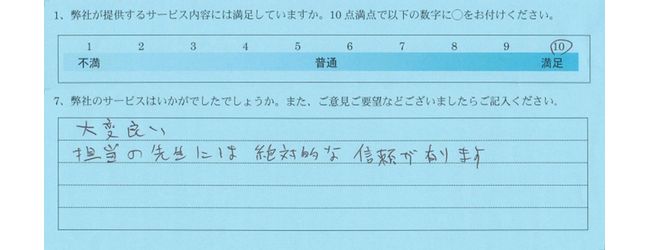 1、弊社が提供するサービス内容には満足していますか。10点満点で以下の数字に○をお付けください。
1 2 3 4 5 6 7 8 9 10
不満 普通 満足
7、弊社のサービスはいかがでしたでしょうか。また、ご意見ご要望などございましたらご記入ください。
大変良い
担当の先生には絶対的な信頼が有ります